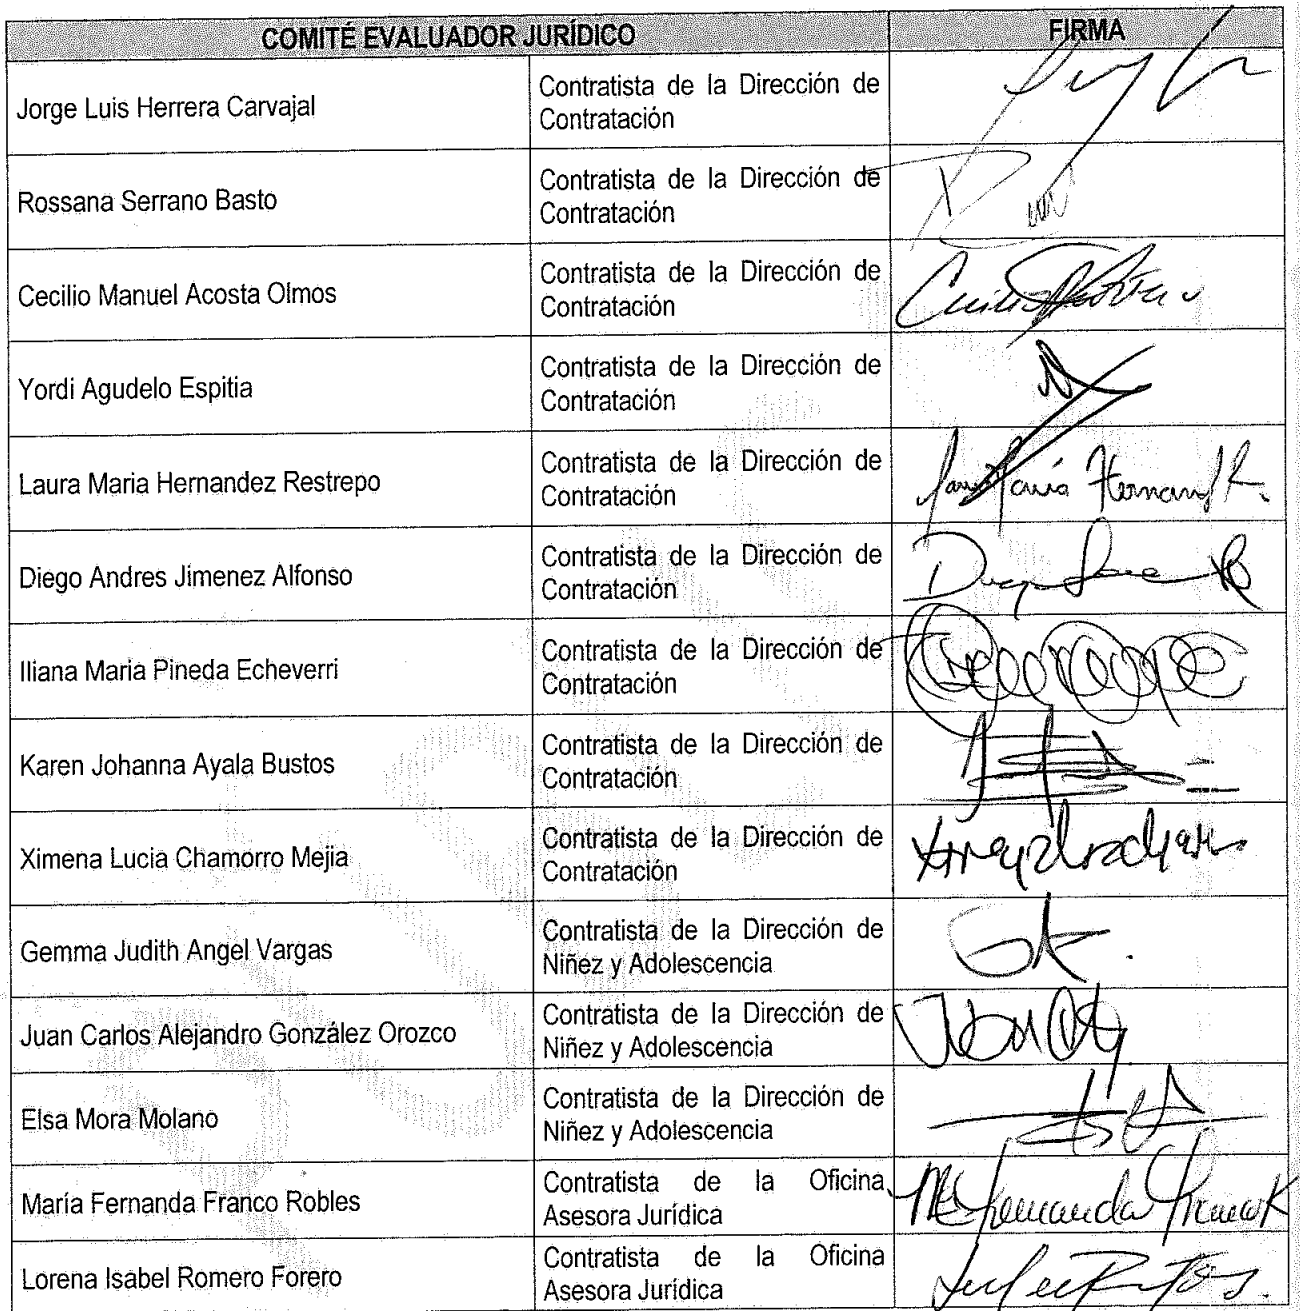 COMITÉ EVALUADOR JURÍDICO FIRMA
Jorge Luis Herrera Carvajal
Contratista de la Dirección de
Contratación
Rossana Serrano Basto
Contratista de la Dirección de
Contratación
Cecilio Manuel Acosta Olmos
Contratista de la Dirección de
Contratación
Yordi Agudelo Espitia
Contratista de la Dirección de
Contratación
Laura Maria Hernandez Restrepo
Contratista de la Dirección de
Contratación
Diego Andres Jimenez Alfonso
Contratista de la Dirección de
Contratación
Iliana Maria Pineda Echeverri
Contratista de la Dirección de
Contratación
Karen Johanna Ayala Bustos
Contratista de la Dirección de
Contratación
Ximena Lucia Chamorro Mejia
Contratista de la Dirección de
Contratación
Gemma Judith Angel Vargas
Contratista de la Dirección de
Niñez y Adolescencia
Juan Carlos Alejandro González Orozco
Contratista de la Dirección de
Niñez y Adolescencia
Elsa Mora Molano
Contratista de la Dirección de
Niñez y Adolescencia
María Fernanda Franco Robles
Contratista de la Oficina
Asesora Jurídica
Lorena Isabel Romero Forero
Contratista de la Oficina
Asesora Jurídica